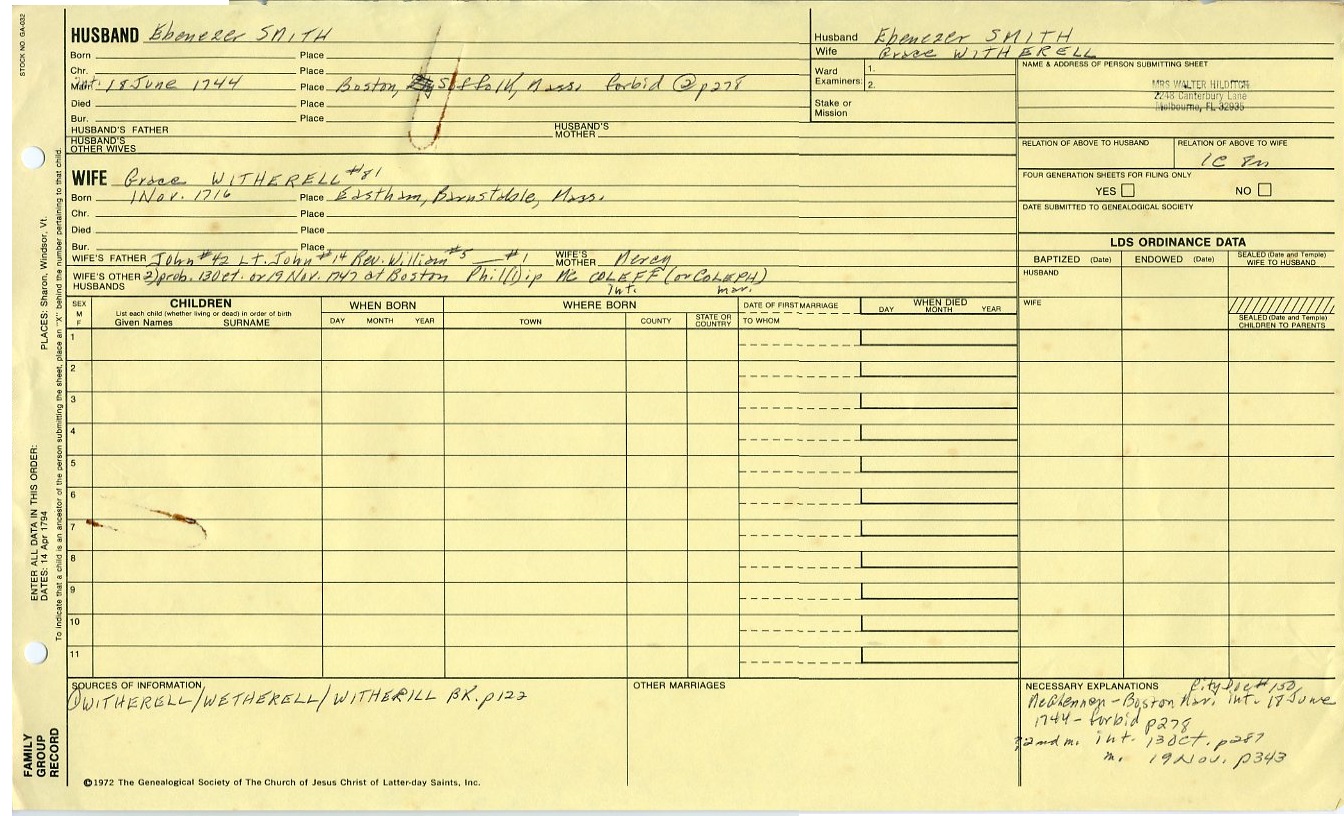 STOCK NO. GA-032
HUSBAND Ebenezer SMITH
Born Place
Chr. Place
Marr. Int. 18 June 1744 Place Boston, Suffolk, Mass. forbid ② p278
Died Place
Bur. Place
HUSBAND'S FATHER HUSBAND'S MOTHER
HUSBAND'S OTHER WIVES
WIFE Grace WITHERELL #81
Born 1 Nov. 1716 Place Eastham, Barnstable, Mass.
Chr. Place
Died Place
Bur. Place
WIFE'S FATHER John #42 Lt. John #14 Rev. William #5 — #1 WIFE'S MOTHER Mercy
WIFE'S OTHER HUSBANDS 2) prob. 13 Oct. or 19 Nov. 1747 at Boston Phil(l)ip Mc COLEFF (or COLEPH)
Int. mar.
Husband Ebenezer SMITH
Wife Grace WITHERELL
Ward Examiners: 1.
2.
Stake or Mission
NAME & ADDRESS OF PERSON SUBMITTING SHEET
MRS WALTER HILDITCH
2248 Canterbury Lane
Melbourne, FL 32935
RELATION OF ABOVE TO HUSBAND RELATION OF ABOVE TO WIFE
1C 8n
FOUR GENERATION SHEETS FOR FILING ONLY
YES NO
DATE SUBMITTED TO GENEALOGICAL SOCIETY
LDS ORDINANCE DATA
BAPTIZED (Date) ENDOWED (Date) SEALED (Date and Temple) WIFE TO HUSBAND
HUSBAND
WIFE
SEALED (Date and Temple) CHILDREN TO PARENTS
SEX M F
CHILDREN
List each child (whether living or dead) in order of birth
Given Names SURNAME
WHEN BORN
DAY MONTH YEAR
WHERE BORN
TOWN COUNTY STATE OR COUNTRY
DATE OF FIRST MARRIAGE
TO WHOM
WHEN DIED
DAY MONTH YEAR
1
2
3
4
5
6
7
8
9
10
11
SOURCES OF INFORMATION
① WITHERELL/WETHERELL/WITHERILL BK. p122
OTHER MARRIAGES
NECESSARY EXPLANATIONS City Doc # 150
McGlennen - Boston Mar. Int. 18 June
1744 - forbid p278
? 2nd m. int. 13 Oct. p287
m. 19 Nov. p343
©1972 The Genealogical Society of The Church of Jesus Christ of Latter-day Saints, Inc.
FAMILY GROUP RECORD
ENTER ALL DATA IN THIS ORDER:
DATES: 14 Apr 1794
PLACES: Sharon, Windsor, Vt.
To indicate that a child is an ancestor of the person submitting the sheet, place an "X" behind the number pertaining to that child.